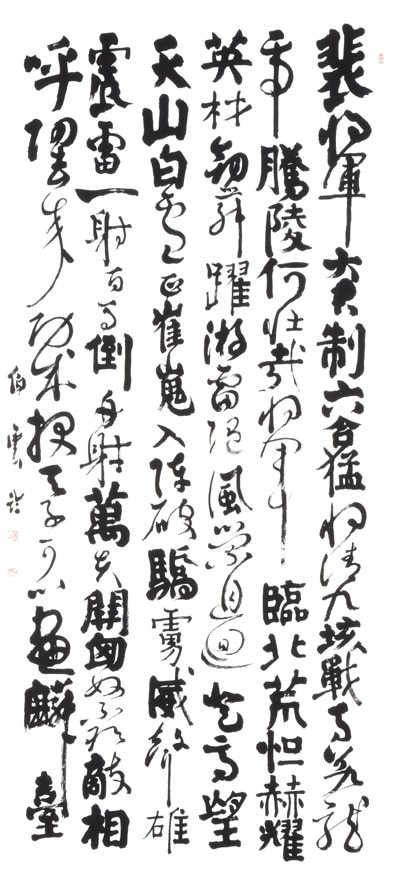 裴將軍大君制六合猛將清九垓戰馬若龍
虎騰陵何壯哉將軍臨北荒恒赫耀
英材劍舞躍游雷隨風縈且迴登高望
天山白雲正崔嵬入陣破驕虜威聲雄
震雷一射百馬倒再射萬夫開匈奴不敢敵相
呼歸去來功成報天子可以畫麟臺
伯雲